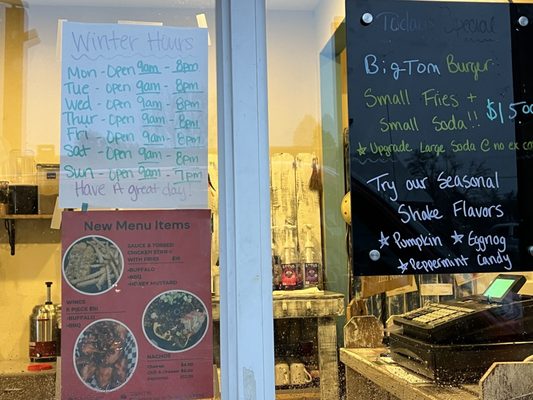 Winter Hours
Mon - Open 9am - 8pm
Tue - Open 9am - 8pm
Wed - Open 9am - 8pm
Thur - Open 9am - 8pm
Fri - Open 9am - 8pm
Sat - Open 9am - 8pm
Sun - Open 9am - 7pm
Have A great day!
New Menu Items
SAUCE & TOSSED
CHICKEN STRIPS
WITH FRIES
-BUFFALO
-BBQ
-HONEY MUSTARD
WINGS
-BUFFALO
-BBQ
NACHOS
Today's Special
Big Tom Burger
Small Fries +
Small Soda!!
$1500
Upgrade Large Soda @ no ex
Try our Seasonal
Shake Flavors
Pumpkin Eggnog
Peppermint Candy